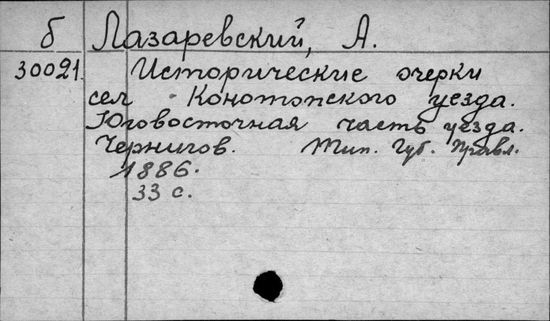 б Лазаревский, А.
30021. Исторические очерки
сел Конотопского уезда.
Юговосточная часть уезда.
Чернигов. Тип. Губ. Правл.
1886.
33 с.